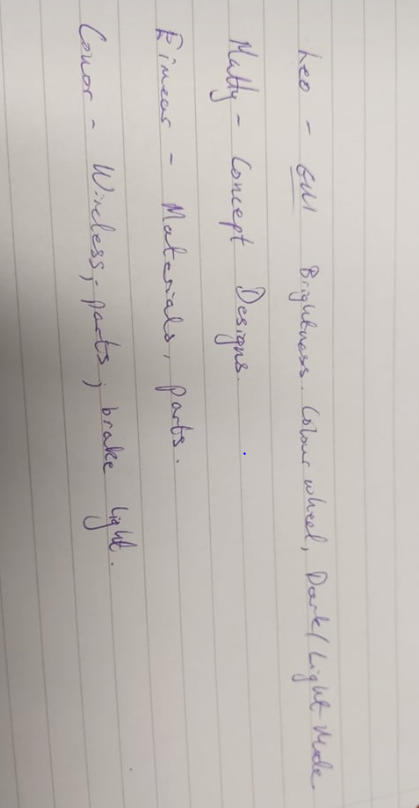 Leo - GUI Brightness. Colour wheel, Dark/Light Mode
Matty - Concept Designs.
Eimear - Materials, parts.
Conor - Wireless, parts, brake light.